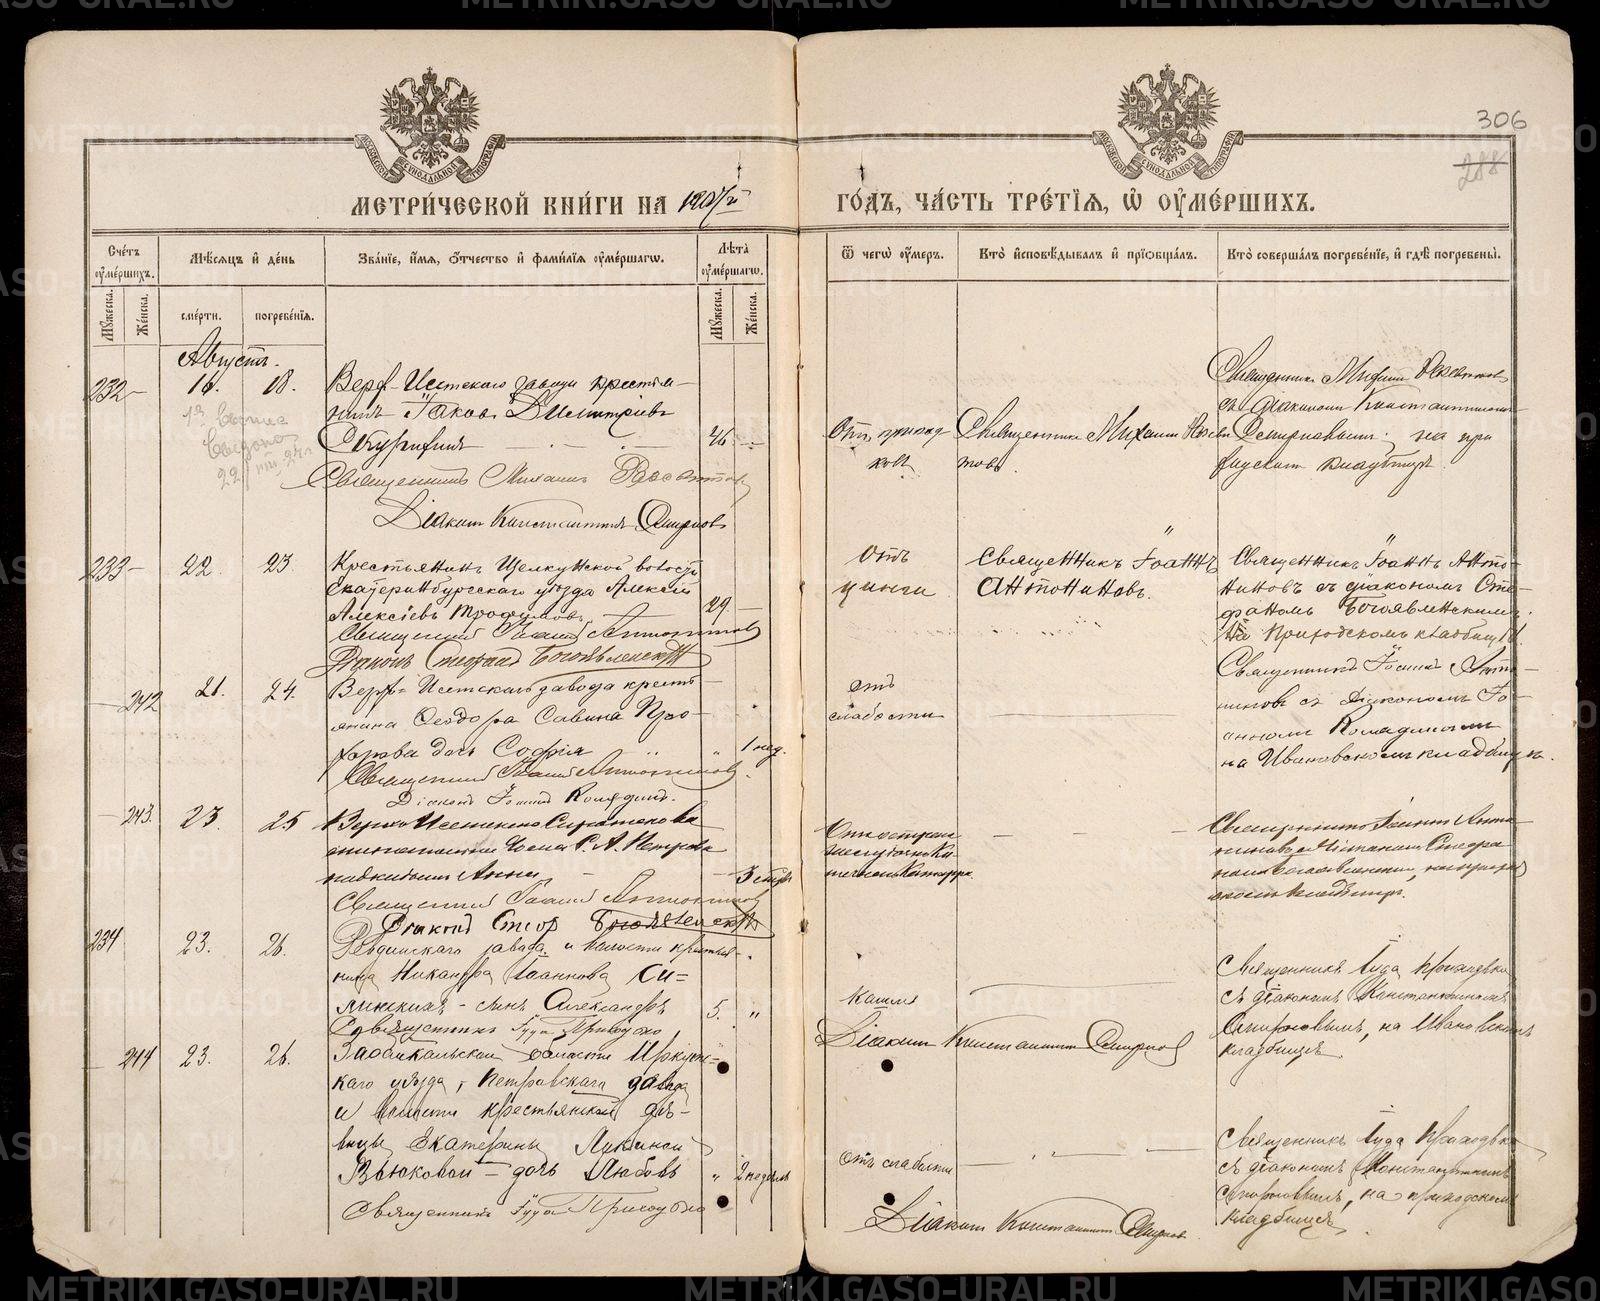 306
288
МЕТРИ́ЧЕСКОЙ КНИ́ГИ НА 1907/й ГО́ДЪ, ЧА́СТЬ ТРЕ́ТІЯ, Ѿ ОУМЕ́РШИХЪ.
Сче́тъ оуме́ршихъ.
Мꙋжеска.
Же́нска.
Мѣсяцъ и день
сме́рти.
погребе́нія.
Зва́ніе, и́мя, о́тчество и фами́лія оуме́ршагѡ.
Лѣта̀ оуме́ршагѡ.
Мꙋжеска.
Же́нска.
Ѿ чегѡ̀ оу́меръ.
Кто̀ исповѣ́дывалъ и пріѡбща́лъ.
Кто̀ соверша́лъ погребе́ніе, и гдѣ̀ погребены̀.
Августъ.
232 –
16.
18.
Верх-Исетскаго завода крестья-
нинъ Іаковъ Димитріевъ
46.
Священникъ Михаилъ
Діаконъ Константинъ Смирновъ
Священникъ Михаилъ
съ діакономъ Константиномъ
Смирновымъ, на при
ходскомъ кладбищѣ.
233 –
22.
23.
Крестьянинъ Щелкунской волости
Екатеринбургскаго уѣзда Алексѣй
Алексіевъ Трофимовъ
29
Священникъ Іоаннъ Антониновъ
Діаконъ Стефанъ Богоявленскій
Отъ
цынги
Священникъ Іоаннъ
Антониновъ.
Священникъ Іоаннъ Анто-
ниновъ съ діакономъ Сте-
фаномъ Богоявленскимъ.
На Приходскомъ кладбищѣ.
242
21.
24.
Верхъ-Исетскаго завода кресть-
янина Ѳеодора Савина Про-
хорова дочь Софія
1 нед.
Священникъ Іоаннъ Антониновъ
Діаконъ Іоаннъ Колядинъ.
отъ
слабости
Священникъ Іоаннъ Анто-
ниновъ съ Діакономъ Іо-
анномъ Колядинымъ
на Ивановскомъ кладбищѣ.
243.
23.
25
Верхо Исетскаго
Петрова
Анна
Священникъ Іоаннъ Антониновъ
Діаконъ Стеф. Богоявленскій
Священникъ Іоаннъ Анто-
ниновъ съ Діакономъ Стефа
номъ Богоявленскимъ, на приход
скомъ кладбищѣ.
234
23.
26.
Ревдинскаго завода и волости крестья-
нина Никандра Іоаннова Си-
линскихъ – сынъ Александръ
5. "
Священникъ Іуда Приходько
кашля
Діаконъ Константинъ Смирновъ
Священникъ Іуда Приходько
съ діакономъ Константиномъ
Смирновымъ, на Ивановскомъ
кладбищѣ.
244
23.
26.
Забайкальской области Иркутс-
каго уѣзда, Петровскаго завода
и волости крестьянской дѣ-
вицы Екатерины Лукиной
Зыковой – дочь Любовь
" 2 недѣль
Священникъ Іуда Приходько
Отъ слабости
Діаконъ Константинъ Смирновъ
Священникъ Іуда Приходько
съ діакономъ Константиномъ
Смирновымъ, на приходскомъ
кладбищѣ.
METRIKI.GASO-URAL.RU